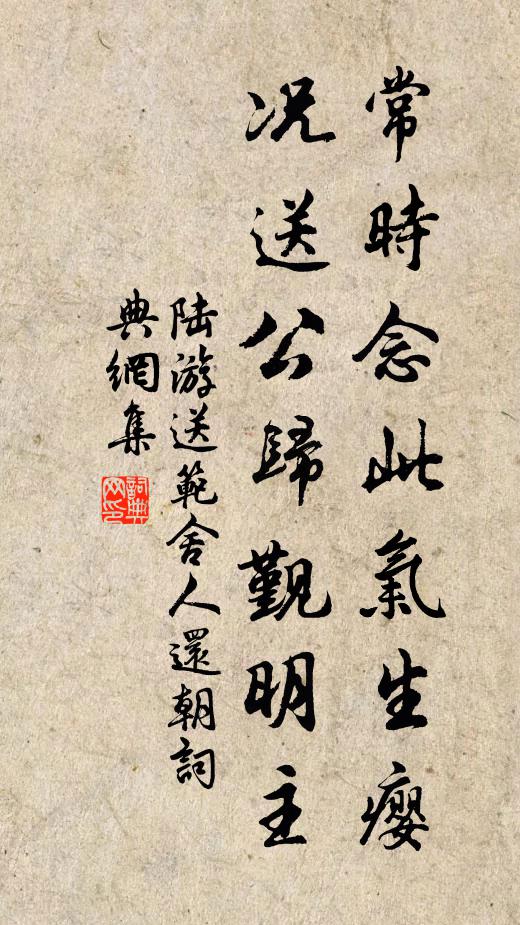 常時念此氣生癭
况送公歸覲明主
陸游送範舍人還朝詞
典網集
詞典
网印